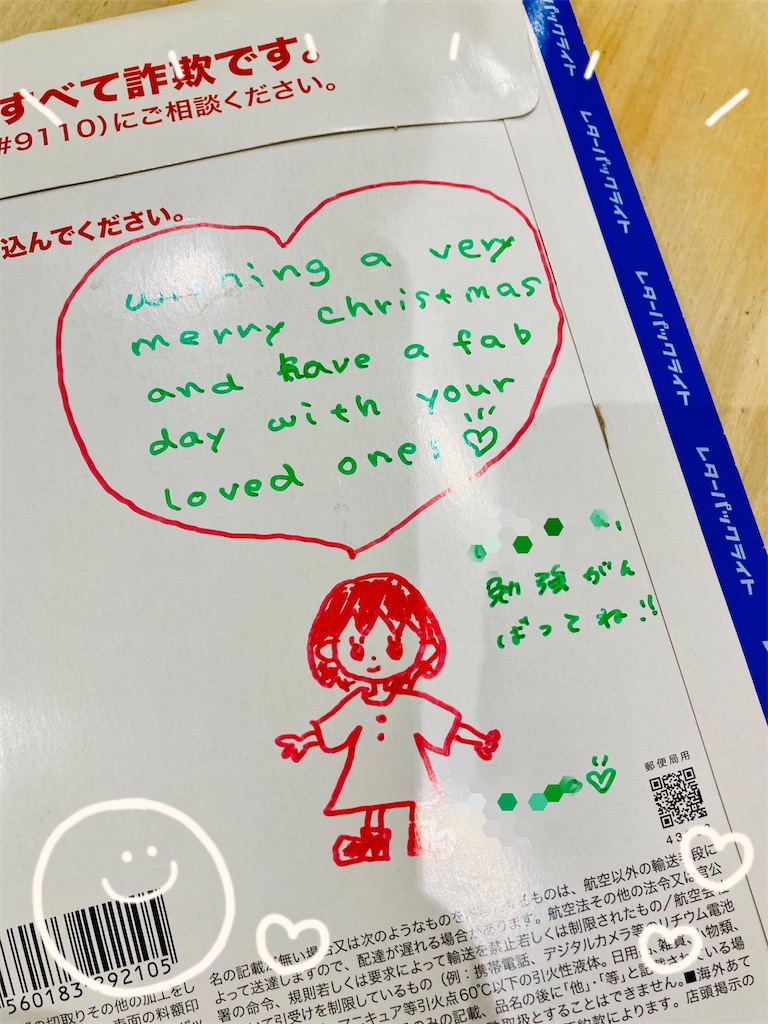 すべて詐欺です。
#9110)にご相談ください。
込んでください。
レターパックライト
レターパックライト
レターパックライト
レターパックライト
wishing a very
merry christmas
and have a fab
day with your
loved ones
勉強がん
ばってね!!
郵便局用
560183 292105
名の記載が無い場合又は次のようなものを
ものは、航空以外の輸送手段に
よって送達しますので、配達が遅れる場合があります。航空法その他の法令又は官公
署の命令、規則若しくは要求によって輸送を禁止若しくは制限されたもの/航空会社
引受けを制限しているもの(例:携帯電話、デジタルカメラ等
リチウム電池
マニキュア等引火点60℃以下の引火性液体。日用品、雑貨、
物類、
のみの記載、品名の後に「他」・「等」と記載されている場
取扱とすることはできません。■海外あて
約款によります。
店頭掲示の
の切取りその他の加工をし
表面の料額印